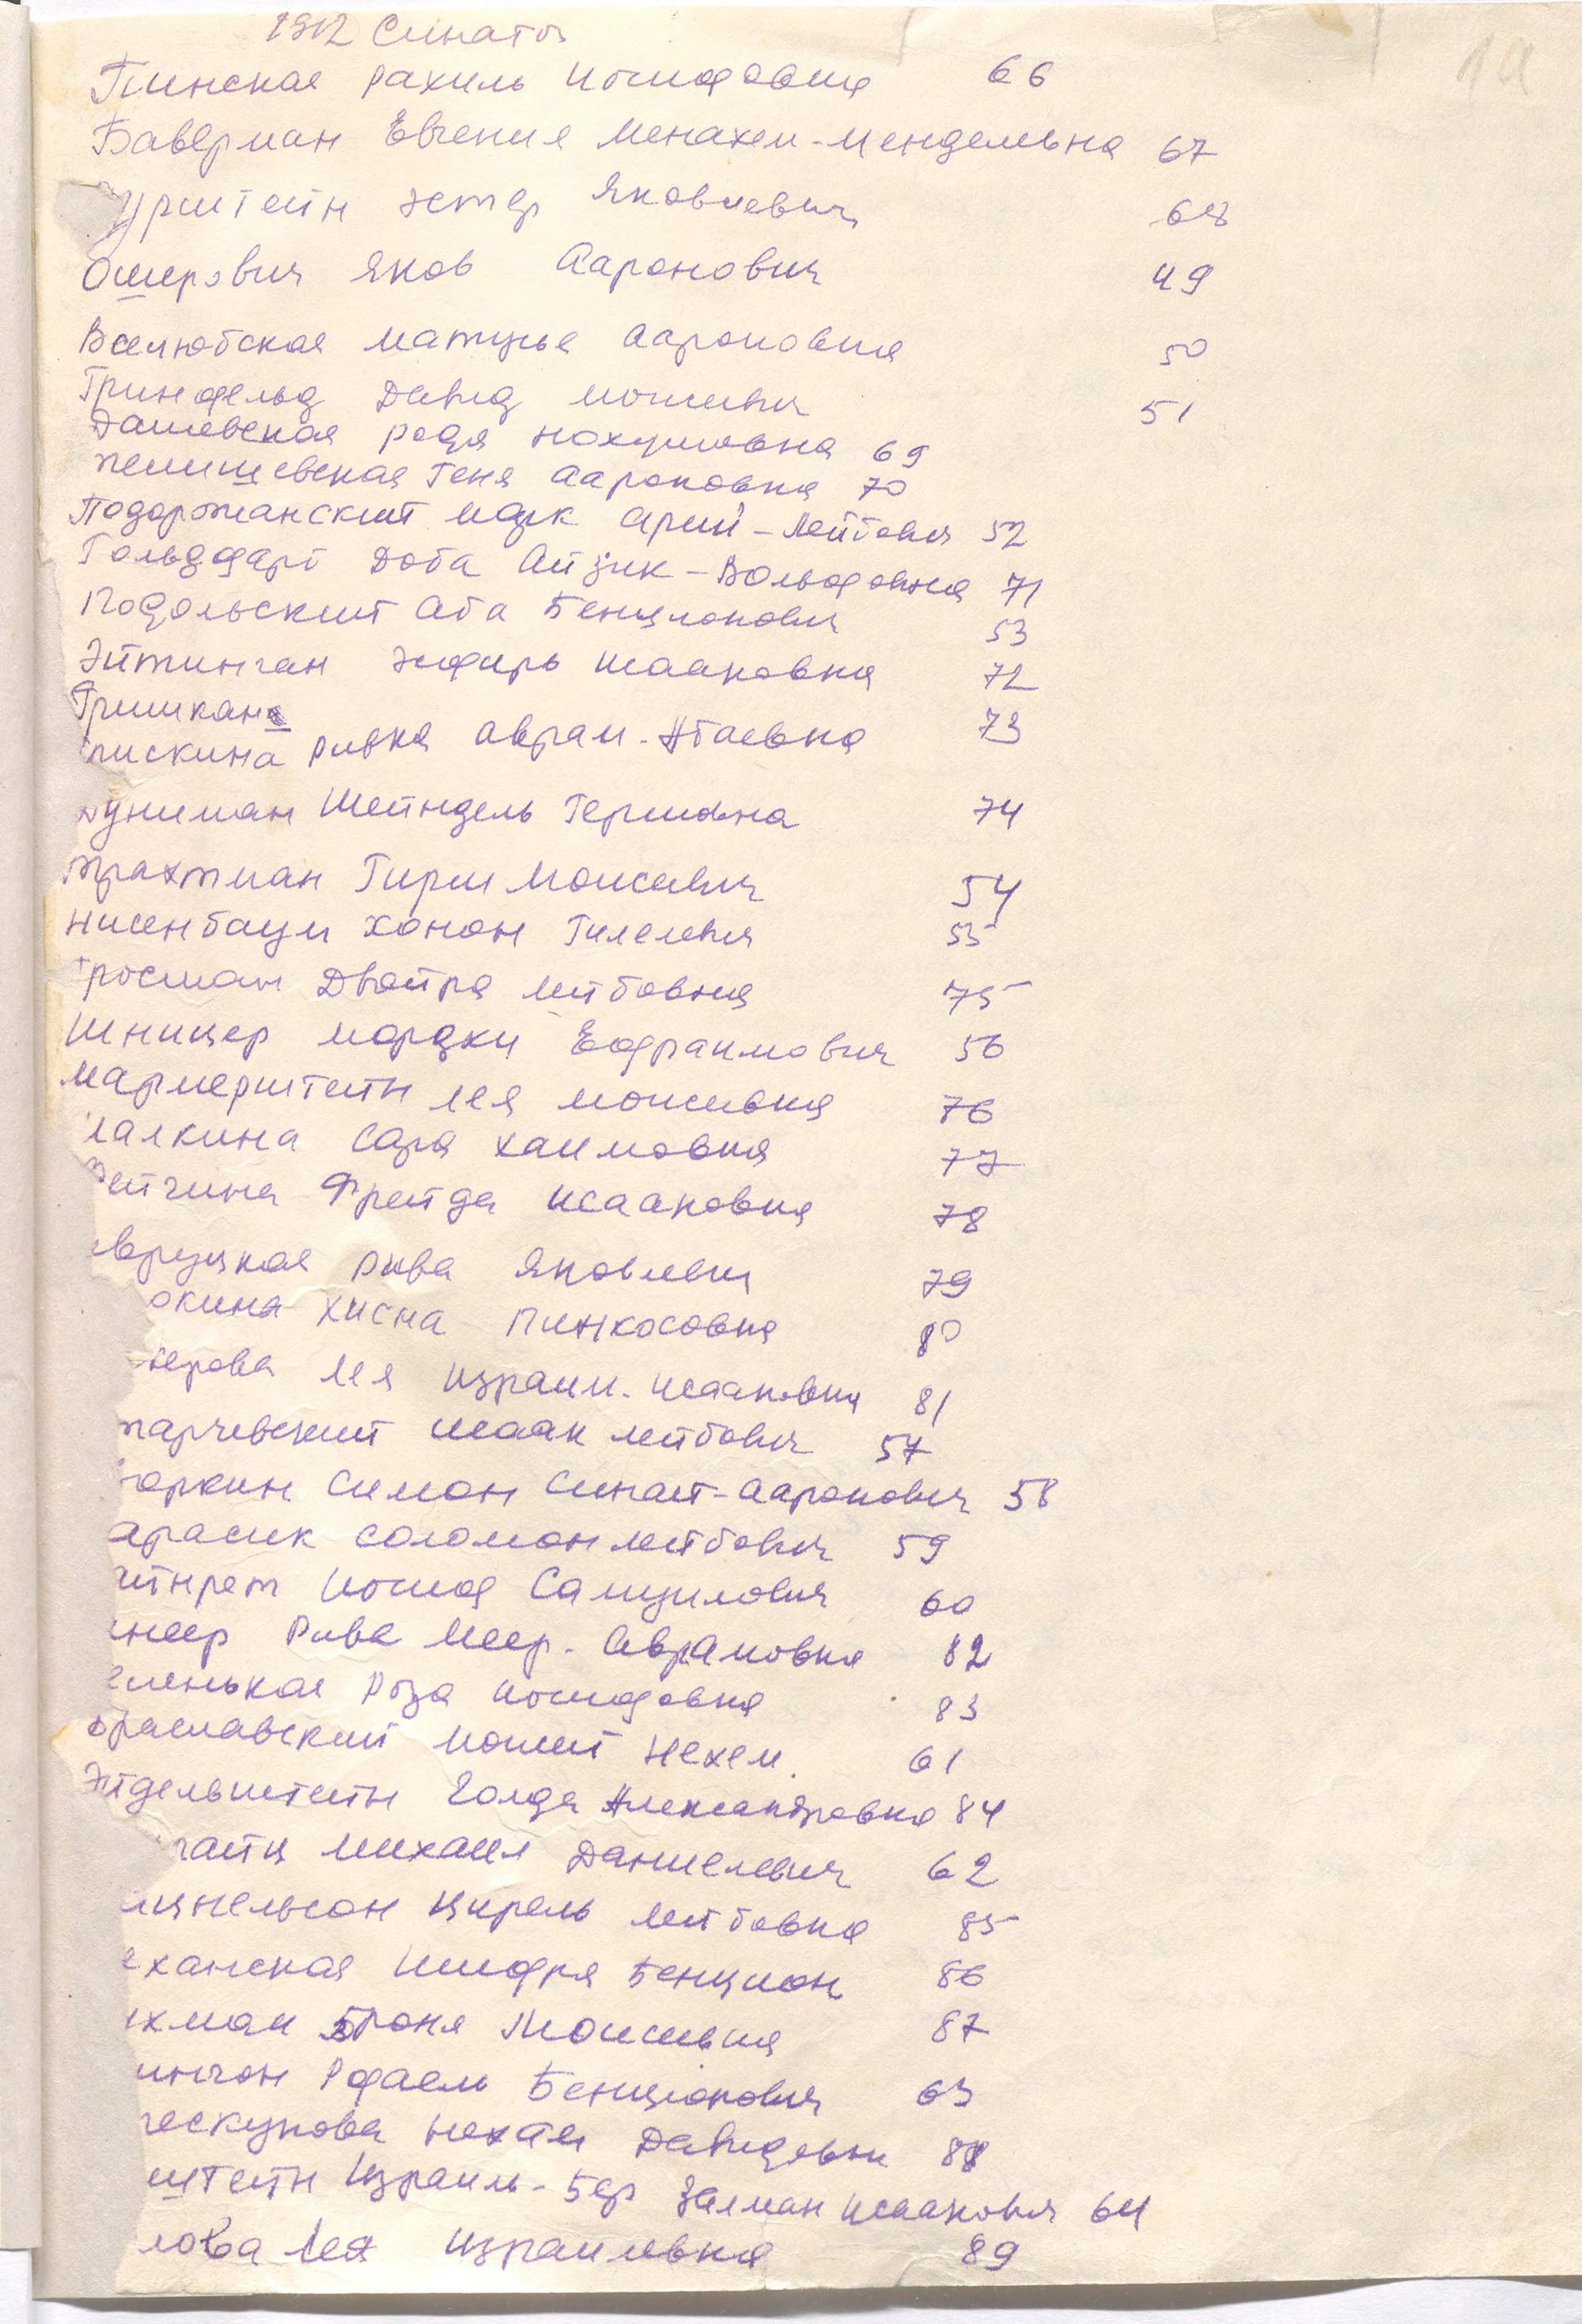 1912 Синагог
Пинская Рахиль Иосифовна 66
Баверман Евгения Менахем-Мендельевна 67
урштейн Эстер Яковлевич 68
Ошерович Яков Ааронович 49
Вселюбская Матуся Аароновна 50
Гринфельд Давид Моисевич 51
Дашевская Родя Нохумовна 69
Темишевская Геня Аароновна 70
Подорожанский Марк Арий-Лейбович 52
Гольдфарб Доба Айзик-Вольфовна 71
Подольский Аба Бенционович 53
Эйтинган Эсфирь Исааковна 72
Гришкан
пискина Ривка Аврам-Абаевна 73
Дуниман Шейндель Гершовна 74
Трахтман Гирш Моисевич 54
Нисенбаум Ханон Гилелевич 55
Гросман Двойра Лейбовна 75
Шницер Мордхи Ефраимович 56
Мармерштейн Лея Моисевна 76
алкина Сара Хаимовна 77
ейгина Фрейда Исааковна 78
вруцкая Рива Яковлевн 79
окина Хисна Пинхосовна 80
нерова Лея Израил-Исааковна 81
тарчевский Исаак Лейбович 57
горкин Симон Синай-Ааронович 58
арасик Соломон Лейбович 59
йнрет Иосиф Самуилович 60
неер Рива Меер-Аврамовна 82
еленькая Роза Иосифовна 83
браславский Моисей Нехем. 61
Эйдельштейн Голда Александровна 84
гайц Михаил Даниелевич 62
цнельсон Цирель Лейбовна 85
ханская Шифра Бенцион 86
хман Броня Моисевна 87
ингон Рфаель Бенционович 63
ескунова Нехам Давидовн 88
штейн Израиль-Бер Залман Исаакович 64
лова Лея Израилевна 89
1а